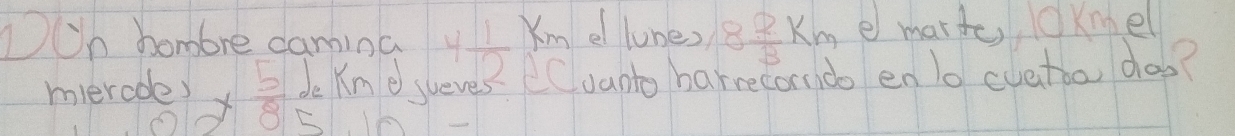 1) Un hombre camina 4 1/2 Km el lunes, 8 2/3 Km el martes, 10 Km el
miercoles y 5/8 de Km el jueves ¿Cuanto ha recorrido en lo cuatro dias?